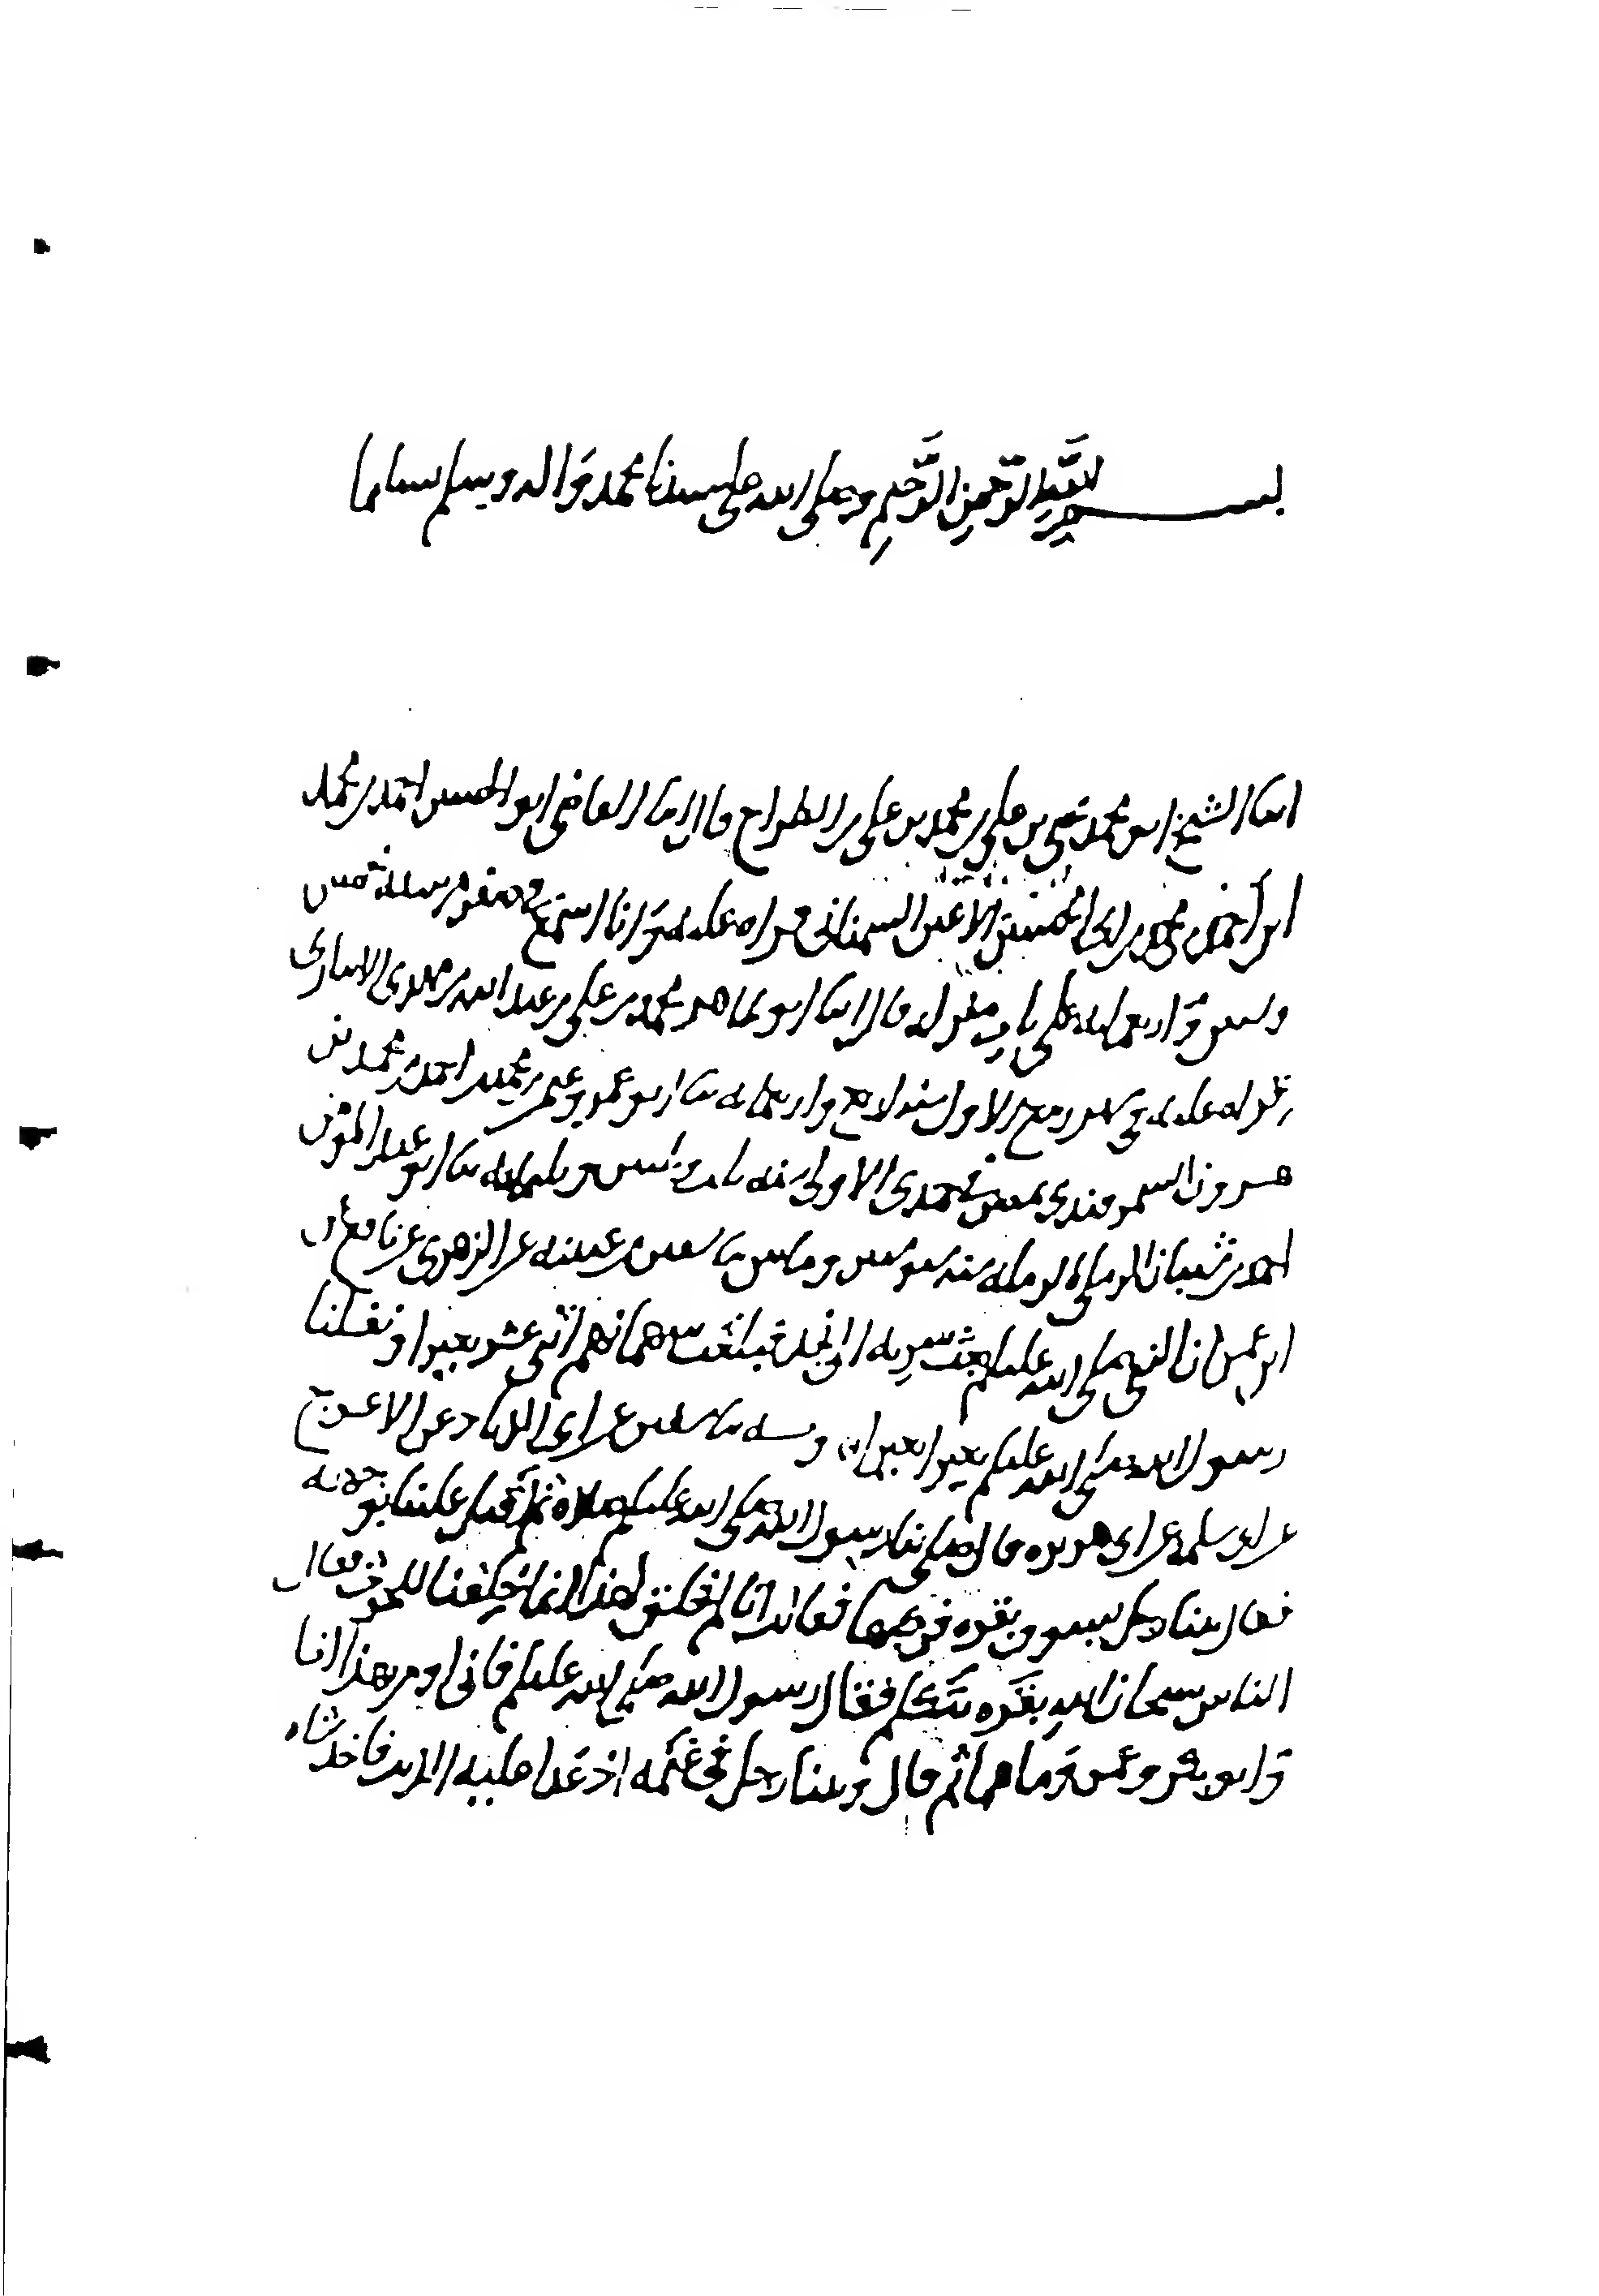 بسم الله الرحمن الرحيم وصلى الله على سيدنا محمد واله وسلم تسليما
انبا الشيخ ابو محمد يحيى بن علي بن محمد بن علي بن الطراح قال انبا القاضي ابو الحسين احمد بن محمد
ابن احمد بن محمد بن السمناني قراه عليه وانا اسمع في صفر من سنه خمس
وستين واربعمايه على باب منزله قال انبا ابو طاهر محمد بن علي بن عبد الله بن مهدي الانباري
قراه عليه في شهر ربيع الاول سنه واربعمايه ثنا ابو عمرو عثمن بن محمد بن احمد بن محمد بن
هرون السمرقندي في جمدى الاولى سنه وثلثمايه ثنا ابو عبد المومن
احمد بن شيبان الرملي بالرمله سنه ومايتين ثنا سفين بن عيينه عن الزهري عن نافع عن
ابن عمر ان النبي صلى الله عليه وسلم بعث سريه الى نجد فبلغت سهمانهم اثنى عشر بعيرا ونفلنا
رسول الله صلى الله عليه وسلم بعيرا بعيرا وبه ثنا سفين عن ابي الزناد عن الاعرج
عن ابي سلمه عن ابي هريره قال صلى بنا رسول الله صلى الله عليه وسلم صلاه ثم اقبل علينا بوجهه
فقال بينا رجل يسوق بقره فضربها فقالت انا لم نخلق لهذا انما خلقنا للحرث فقال
الناس سبحان الله بقره تتكلم فقال رسول الله صلى الله عليه وسلم فاني اومن بهذا انا
وابو بكر وعمر وما هما ثم قال وبينا رجل في غنمه اذ عدا عليه الذيب فاخذ شاه